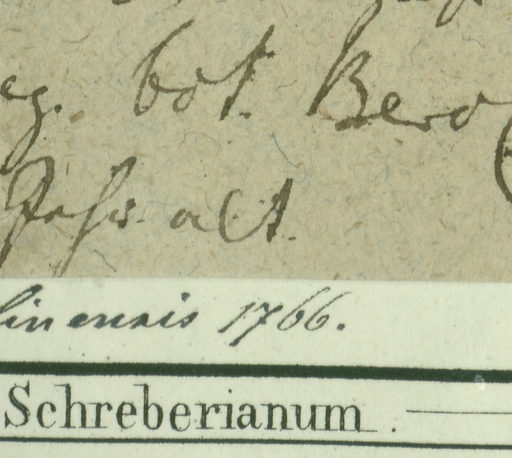 eg. bot. Bero
Jahr alt.
linensis 1766.
Schreberianum